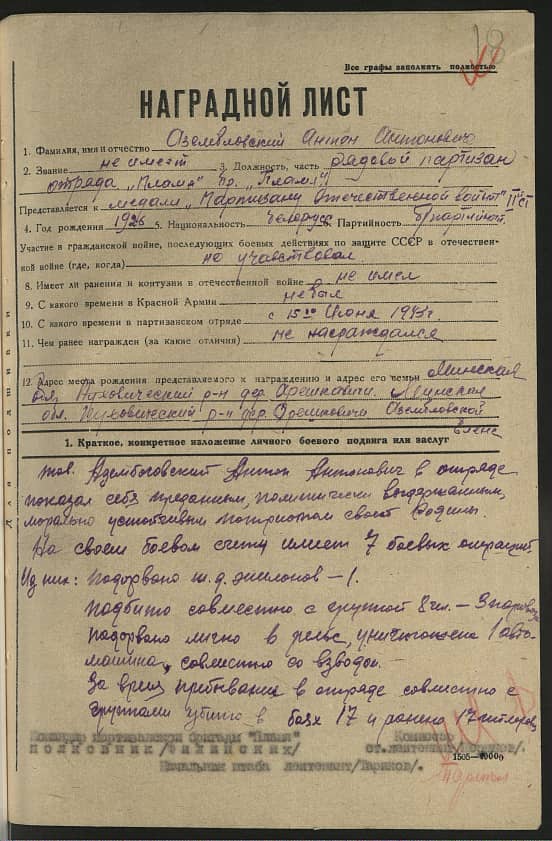 18
Все графы заполнять полностью
НАГРАДНОЙ ЛИСТ
1. Фамилия, имя и отчество Антон Антонович
2. Звание не имеет 3. Должность, часть рядовой партизан
отряда „Пламя" бр. „Пламя"
Представляется к медали „Партизану Отечественной войны" II ст
4. Год рождения 1926 5. Национальность белорус 6. Партийность б/партийный
Участие в гражданской войне, последующих боевых действиях по защите СССР в отечествен-
ной войне (где, когда) не участвовал
8. Имеет ли ранения и контузии в отечественной войне не имел
9. С какого времени в Красной Армии не был
10. С какого времени в партизанском отряде с 15го Июня 1943г.
11. Чем ранее награжден (за какие отличия) не награждался
12. Адрес места рождения представляемого к награждению и адрес его семьи Минская
обл. Пуховический р-н дер. Орешковичи. Минская
обл. Пуховический р-н дер. Орешковичи
Для подшивки
1. Краткое, конкретное изложение личного боевого подвига или заслуг
тов. Антон Антонович в отряде
показал себя преданным, политически выдержанным,
морально устойчивым патриотом своей Родины.
На своем боевом счету имеет 7 боевых операций
Из них: подорвано ж.д. эшелонов – 1.
подбито совместно с группой 8 чел. – 3 паровоза
подорвано лично 8 рельс, уничтожена 1 авто-
машина, совместно со взводом.
За время пребывания в отряде совместно с
группами убито в боях 17 и ранено 17 гитлеровц
Командир партизанской бригады "Пламя" Комиссар
полковник ст. лейтенант
Начальник штаба лейтенант /Тариков/.
1505—